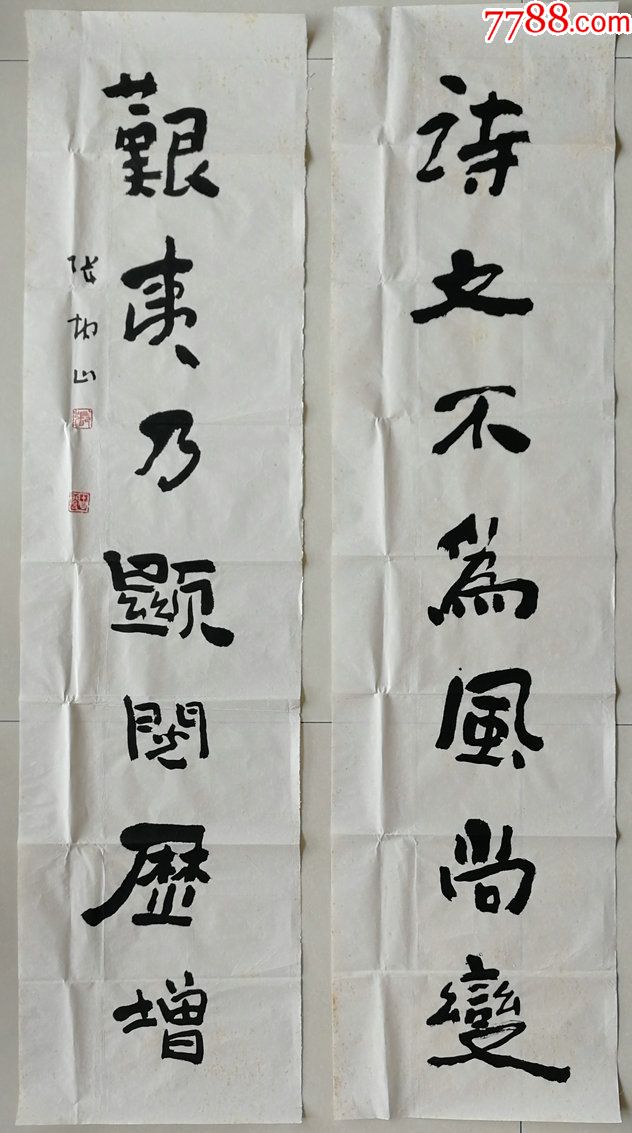 7788.com
詩文不為風尚變
艱夷乃顯閱歷增
张坤山